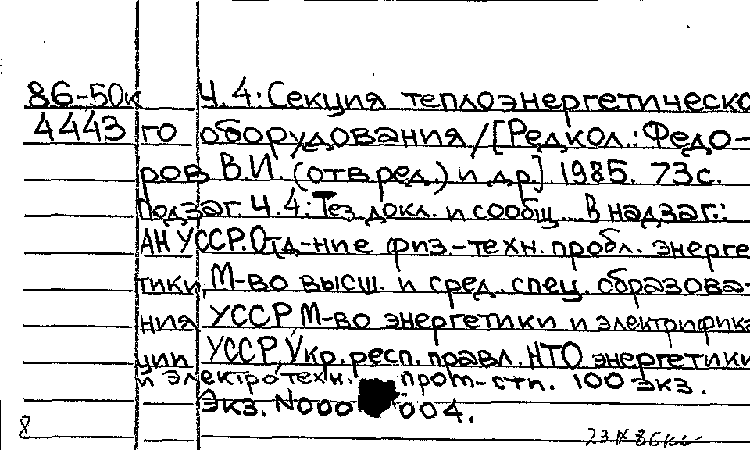 86-50к Ч.4: Секция теплоэнергетическо
4443 го оборудования/[Редкол.: Федо-
ров В.И. (отв.ред.) и др.] 1985. 73с.
Подзаг. Ч.4: Тез.докл. и сообщ. В надзаг.:
АН УССР. Отд-ние физ.-техн. пробл. энерге
тики, М-во высш. и сред. спец. образова-
ния УССР, М-во энергетики и электрифика
ции УССР, Укр. респ. правл. НТО энергетики
и электротехн. пром-сти. 100 экз.
Экз. N000 004.
8